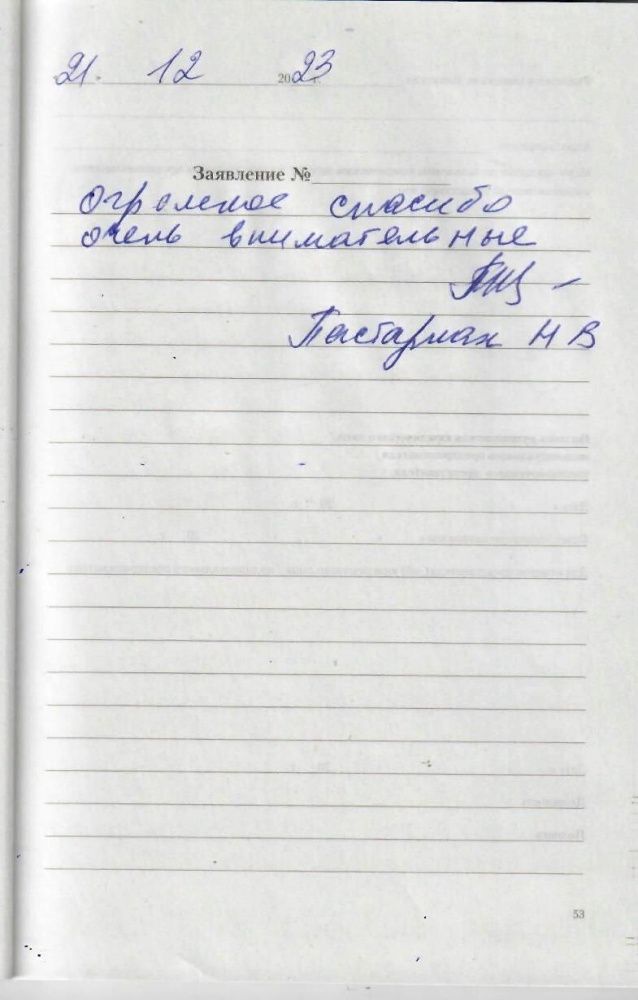 21. 12 2023
Заявление №
огромное спасибо
очень внимательные
Пастарнак Н В
53